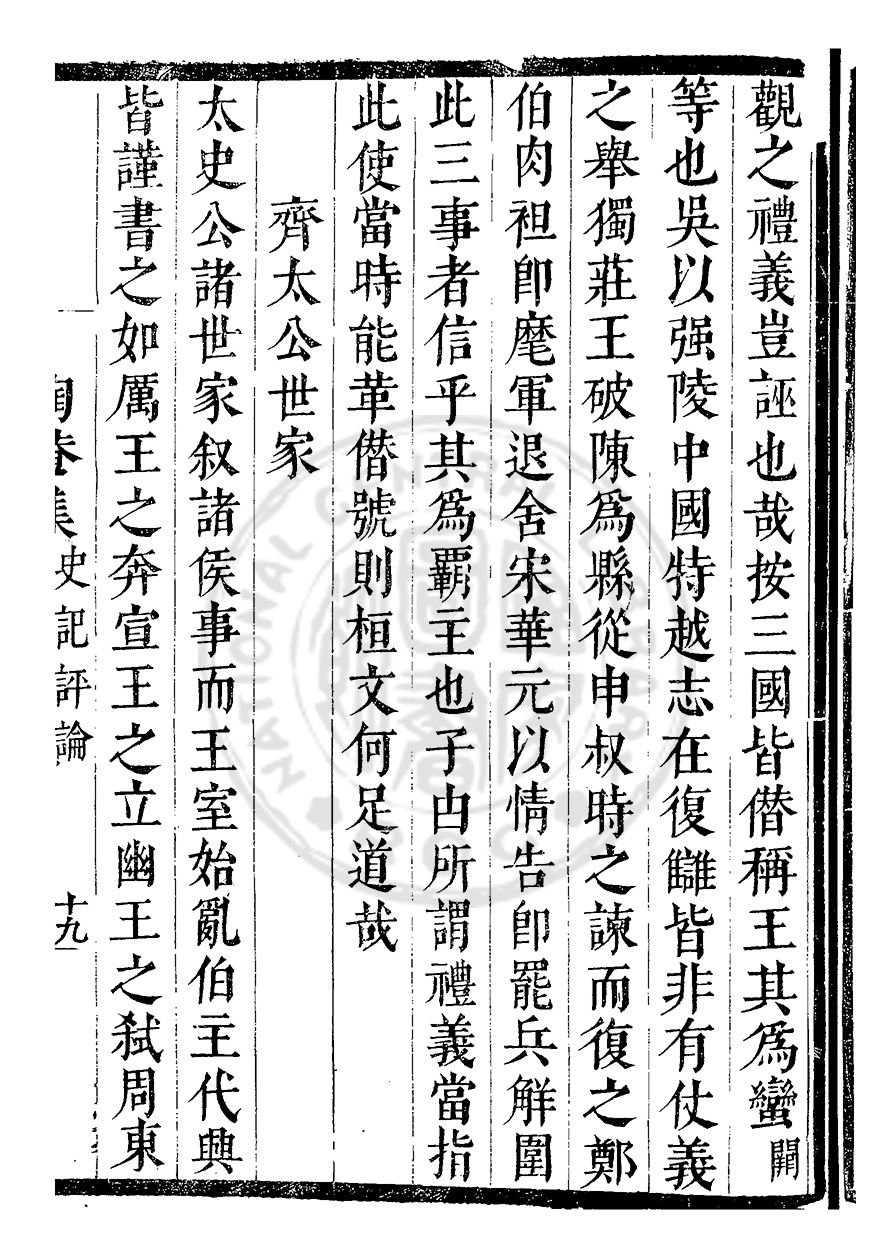 觀之禮義豈誣也哉按三國皆僭稱王其爲蠻閞
等也吳以强陵中國特越志在復讎皆非有仗義
之舉獨莊王破陳爲縣從申叔時之諫而復之鄭
伯肉袒卽麾軍退舍宋華元以情告卽罷兵解圍
此三事者信乎其爲覇主也子西所謂禮義當指
此使當時能革僭號則桓文何足道哉
齊太公世家
太史公諸世家叙諸侯事而王室始亂伯主代興
皆謹書之如厲王之奔宣王之立幽王之弒周東
陶菴集 史記評論 十九
NATIONAL CENTRAL LIBRARY